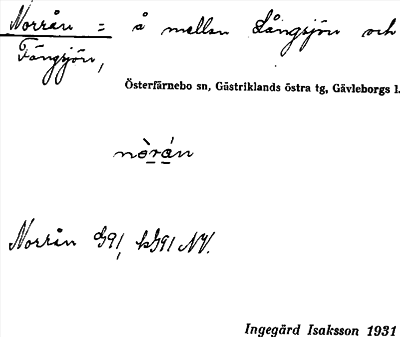 Norrån = å mellan Långsjön och
Fängsjön,
Österfärnebo sn, Gästriklands östra tg, Gävleborgs l.
nòrán
Norrån 91, 91 NV.
Ingegärd Isaksson 1931